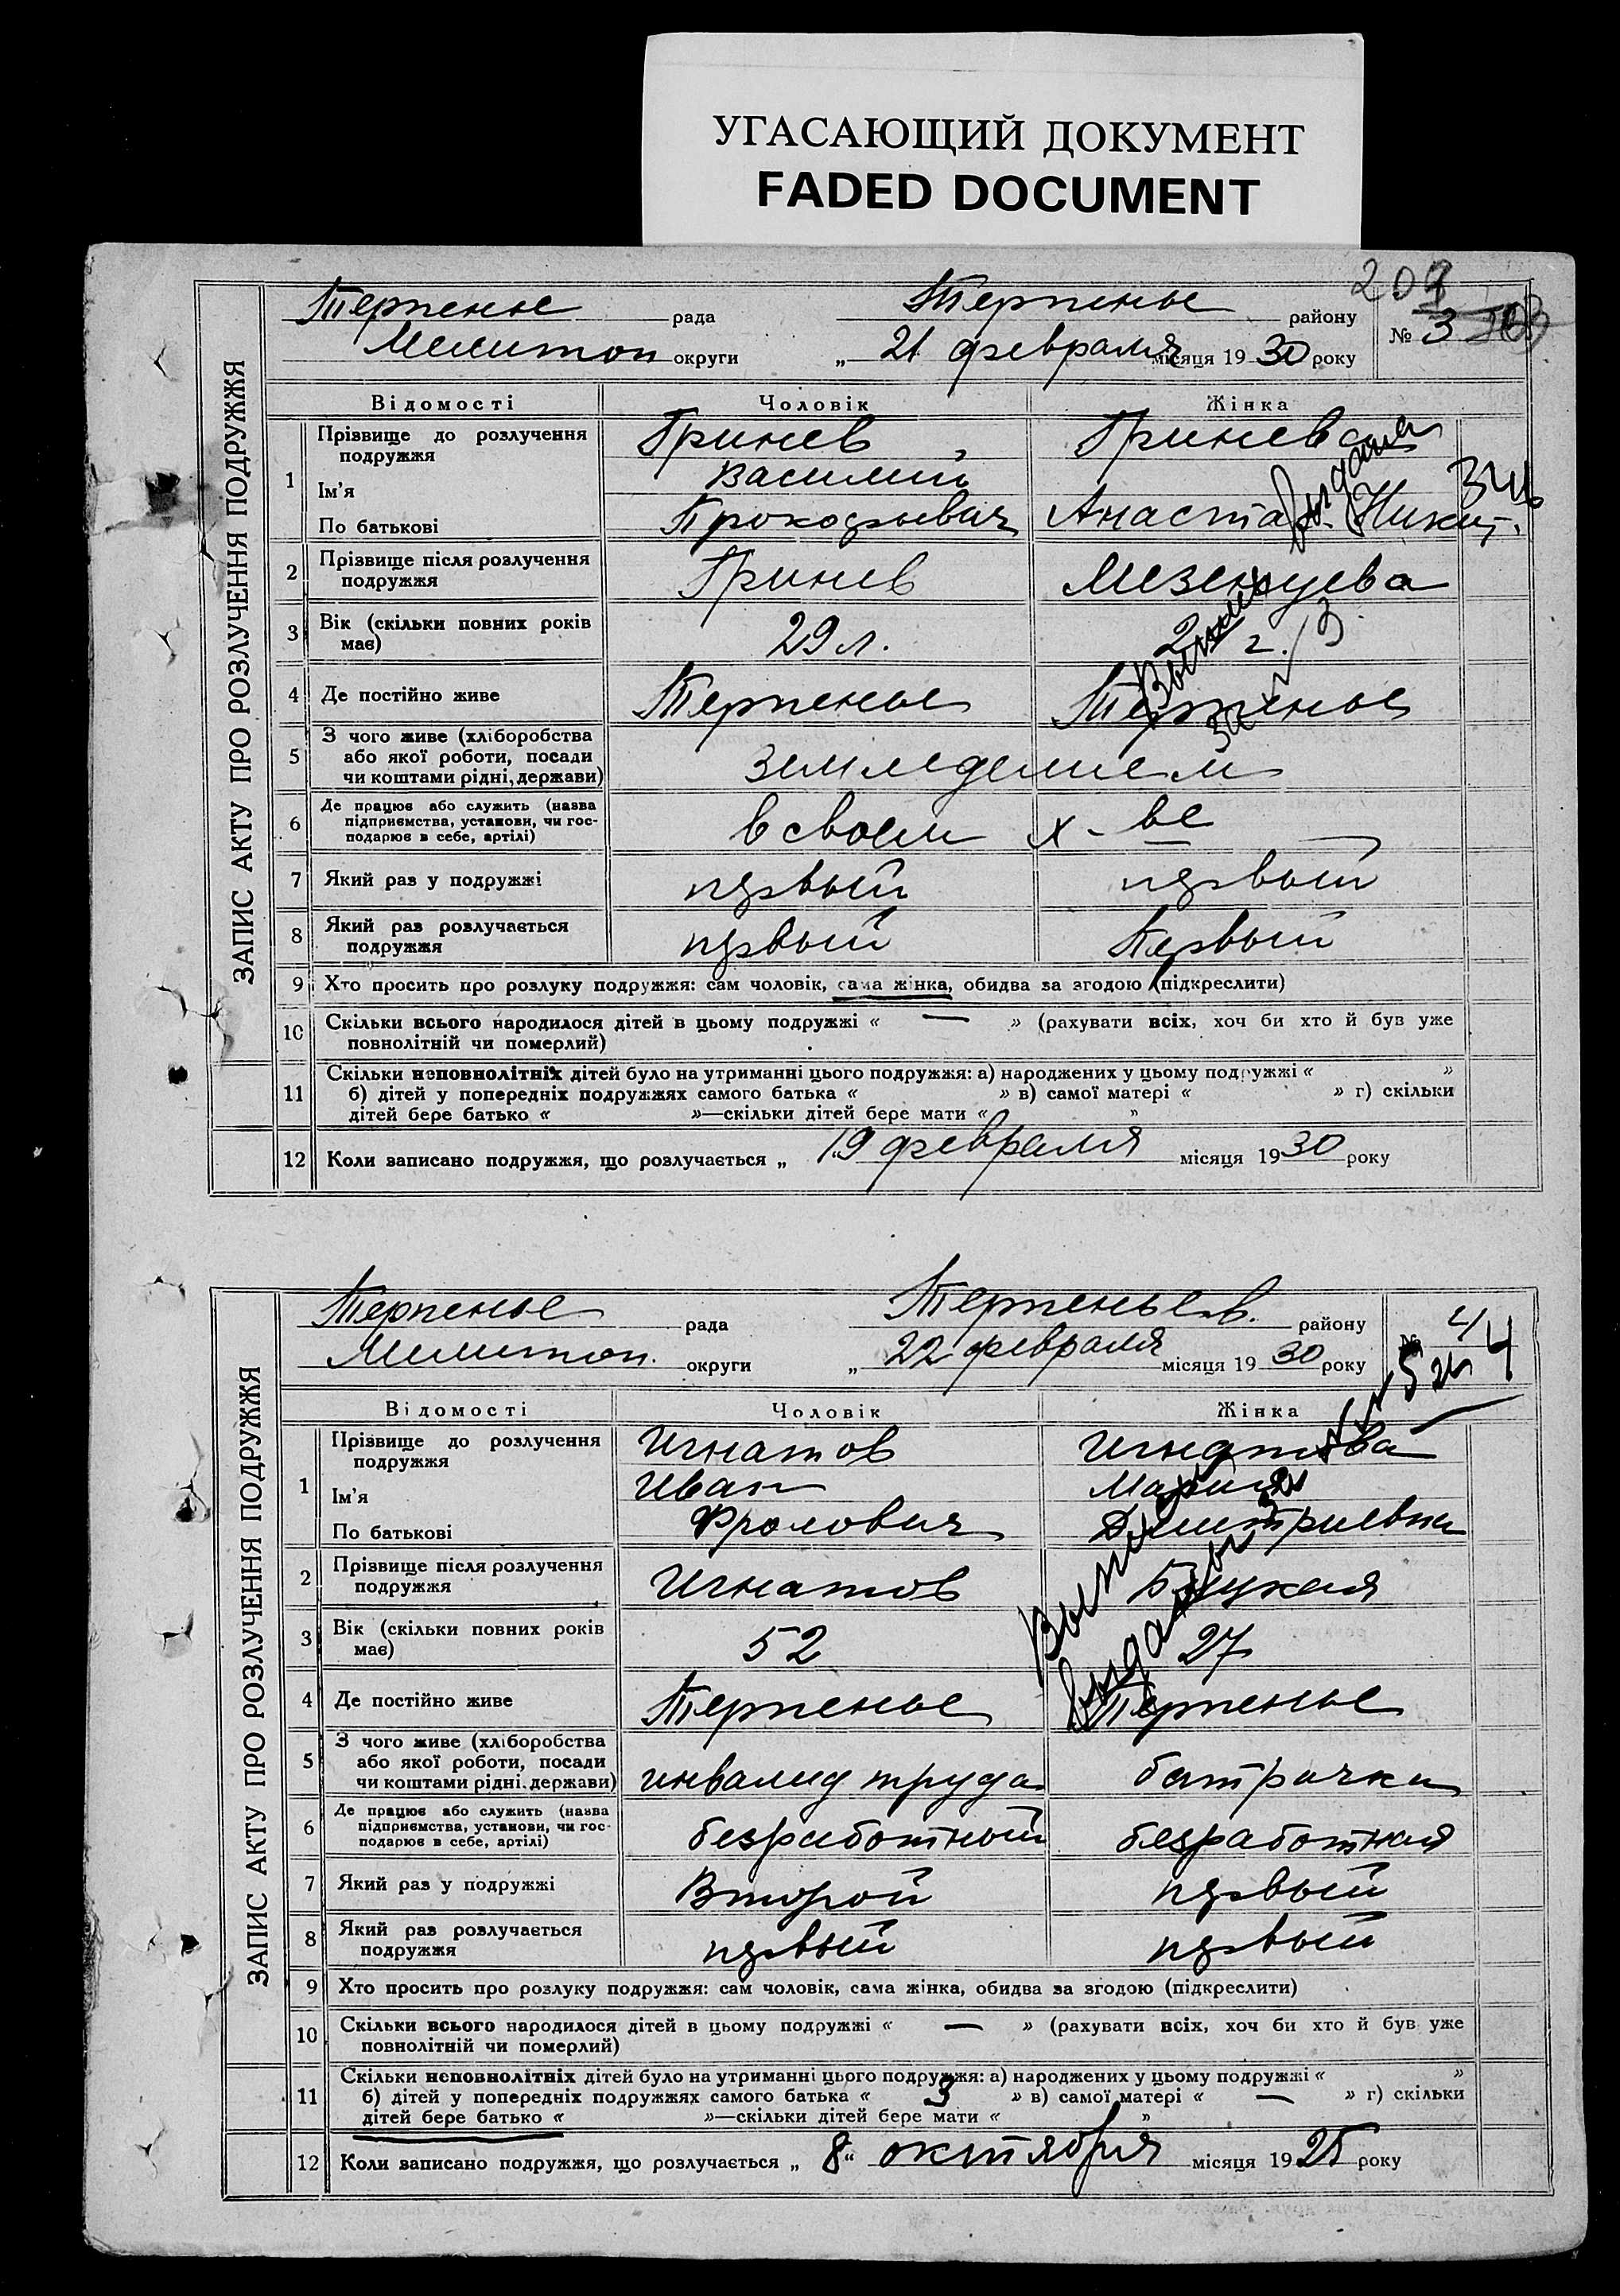 УГАСАЮЩИЙ ДОКУМЕНТ
FADED DOCUMENT
209
ЗАПИС АКТУ ПРО РОЗЛУЧЕННЯ ПОДРУЖЖЯ
Терпенье рада Терпенье району
№ 3
Мелитоп округи „ 21 февраля місяця 1930 року
Відомості Чоловік Жінка
1 Прізвище до розлучення подружжя Гринев Гринева
Ім'я Василий
По батькові Прокофьевич Анаста Никит.
2 Прізвище після розлучення
подружжя Гринев Мезенцева
3 Вік (скільки повних років
має) 29 л. г.
4 Де постійно живе Терпенье Терпенье
5 З чого живе (хліборобства
або якої роботи, посади
чи коштами рідні, держави) земледелием
6 Де працює або служить (назва
підприємства, установи, чи гос-
подарює в себе, артілі) в своем х-ве
7 Який раз у подружжі первый первый
8 Який раз розлучається
подружжя первый Первый
9 Хто просить про розлуку подружжя: сам чоловік, сама жінка, обидва за згодою (підкреслити)
10 Скільки всього народилося дітей в цьому подружжі « — » (рахувати всіх, хоч би хто й був уже
повнолітній чи померлий)
11 Скільки неповнолітніх дітей було на утриманні цього подружжя: а) народжених у цьому подружжі « »
б) дітей у попередніх подружжях самого батька « » в) самої матері « » г) скільки
дітей бере батько « »—скільки дітей бере мати « »
12 Коли записано подружжя, що розлучається „ 19 февраля місяця 1930 року
ЗАПИС АКТУ ПРО РОЗЛУЧЕННЯ ПОДРУЖЖЯ
Терпенье рада Терпеньев. району
№ 4
Мелитоп. округи „ 22 февраля місяця 1930 року
Відомості Чоловік Жінка
1 Прізвище до розлучення
подружжя Игнатов Игнатова
Ім'я Иван Мария
По батькові Фролович Дмитриевна
2 Прізвище після розлучення
подружжя Игнатов
3 Вік (скільки повних років
має) 52 27
4 Де постійно живе Терпенье Терпенье
5 З чого живе (хліборобства
або якої роботи, посади
чи коштами рідні, держави) инвалид труда батрачка
6 Де працює або служить (назва
підприємства, установи, чи гос-
подарює в себе, артілі) безработный безработная
7 Який раз у подружжі Второй первый
8 Який раз розлучається
подружжя первый первый
9 Хто просить про розлуку подружжя: сам чоловік, сама жінка, обидва за згодою (підкреслити)
10 Скільки всього народилося дітей в цьому подружжі « — » (рахувати всіх, хоч би хто й був уже
повнолітній чи померлий)
11 Скільки неповнолітніх дітей було на утриманні цього подружжя: а) народжених у цьому подружжі « »
б) дітей у попередніх подружжях самого батька « 3 » в) самої матері « — » г) скільки
дітей бере батько « »—скільки дітей бере мати « »
12 Коли записано подружжя, що розлучається „ 8 “ октября місяця 1925 року